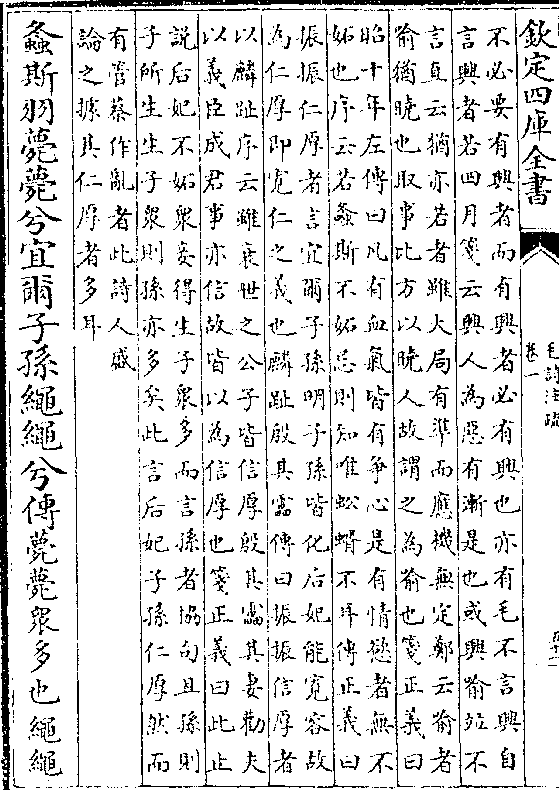 欽定四庫全書
毛詩注疏
卷一
不必要有興者而有興者必有興也亦有毛不言興自
言興者若四月箋云興人為惡有漸是也或興喻並不
言直云猶亦若者雖大局有準而應機無定鄭云喻者
喻猶曉也取事比方以曉人故謂之為喻也箋正義曰
昭十年左傳曰凡有血氣皆有爭心是有情慾者無不
妬也序云若螽斯不妬忌則知唯蚣蝑不耳傳正義曰
振振仁厚者言宜爾子孫明子孫皆化后妃能寬容故
為仁厚即寬仁之義也麟趾殷其靁傳曰振振信厚者
以麟趾序云雖衰世之公子皆信厚殷其靁其妻勸夫
以義臣成君事亦信故皆以為信厚也箋正義曰此止
說后妃不妬衆妾得生子衆多而言孫者協句且孫則
子所生生子衆則孫亦多矣此言后妃子孫仁厚然而
有管蔡作亂者此詩人盛
論之據其仁厚者多耳
螽斯羽薨薨兮宜爾子孫繩繩兮傳薨薨衆多也繩繩